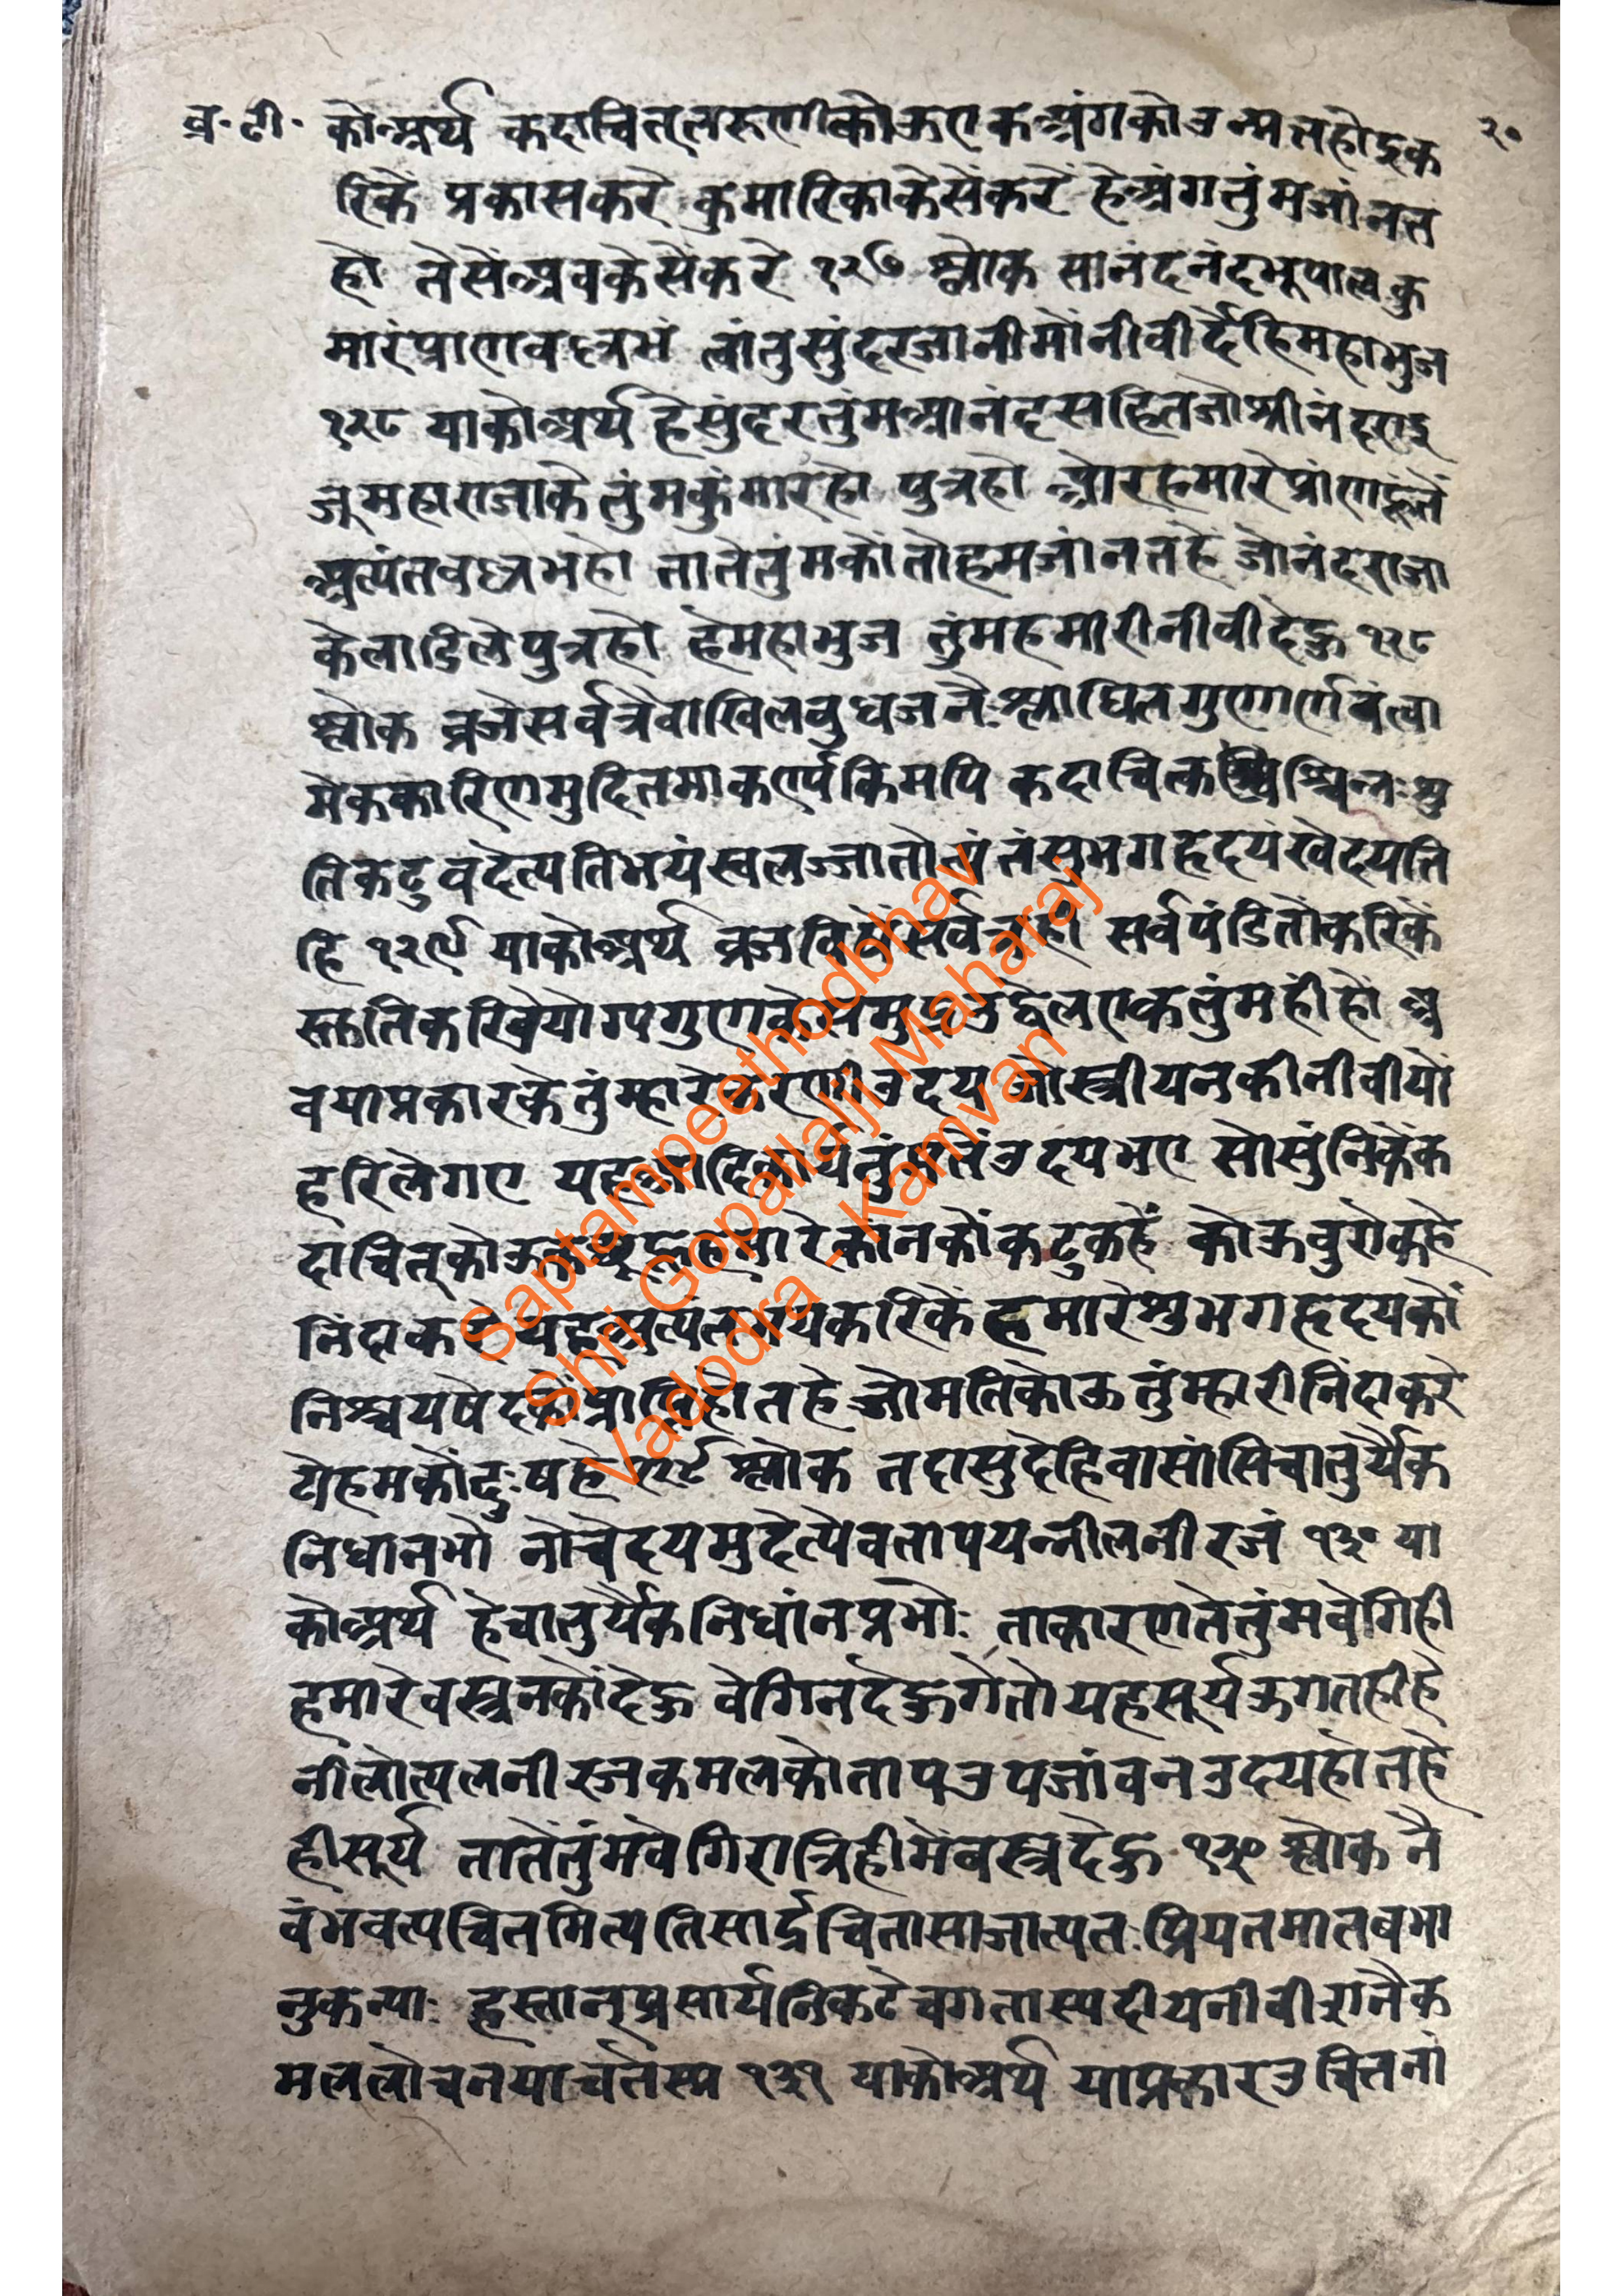 व्र॰ टी॰ २०
कोअर्थ कदाचित् तरुणीकोऊएकअंगकोउन्मतहोइक
रिके प्रकासकरे कुमारिकाकेसेंकरें हेअंगतुंमजांनत
हो तेसेंअबकेसेंकरे १२७ श्लोक सानंदनंदभूपालकु
मारंप्राणवल्लभं त्वांतुसुंदरजानीमोनीवीर्देहिमहाभुज
१२८ याकोअर्थ हेसुंदरतुंमआनंदसहितजोश्रीनंदराइ
जूमहाराजाकेतुंमकुंमारहो पुत्रहो औरहमारेप्रांणहूंतें
अत्यंतवल्लभहो तातेतुंमकोंतोहमजांनतहे जोनंदराजा
केलाडिलेपुत्रहो हेमहाभुज तुंमहमारीनीवीदेऊ १२८
श्लोक व्रजेसर्वत्रैवाखिलबुधजनैःश्लाघितगुणार्णवंत्वा
मेककारिणमुदितमाकर्ण्यकिमपि कदाचित्कश्चिन्तःश्रु
तिकटुवदेत्यतिभयंस्वलज्जातोत्यंतंसुभगहृदयंखेदयति
हि १२९ याकोअर्थ व्रजविषेंसर्वत्रही सर्वपंडितोंकरिकें
स्तुतिकरिवेयोग्यगुणकेसमुद्रउद्वेलएकतुंमहीहों अ
बयाप्रकारकेतुंम्हारेकरणीउदय जोस्त्रीयनकीनीवीयों
हरिलेगए यहआदिकार्यतुंमतेंउदयभए सोसुंनिकेंक
दाचित्कोऊ हमारेकांनकोंकटुकहें कोऊबुरोकहे
निंदाकरे यहअत्यंतभयकरिकें हमारेशुभगहृदयकों
निश्चयषेदकीप्राप्तिहोतहे जोमतिकोऊतुंम्हारीनिंदाकरे
योहमकोंदुःषहे १२९ श्लोक तदासुदेहिवासांसिचातुर्यैक
निधानभो नोचेदयमुदेत्येवतापयन्नीलनीरजं १३० या
कोअर्थ हेचातुर्यैकनिधांनप्रभोः ताकारणतेतुंमवेगिही
हमारेवस्त्रनकोंदेऊ वेगिनदेऊगेतो यहसूर्यऊगतहीहे
नीलोत्पलनीरजकमलकोतापउपजांवनउदयहोतहे
हीसूर्य तातेंतुंमवेगिरात्रिहीमेंवस्त्रदेऊ १३० श्लोक नै
वंभवत्यचितमित्यतिसार्द्रचितासाजात्यतःप्रियतमातबभा
नुकन्याः हस्तान्प्रसार्यनिकटेचगतास्पदीयनीवीरानैक
मललोचनयाचतेस्म १३१ याकोअर्थ याप्रकारउचितनां